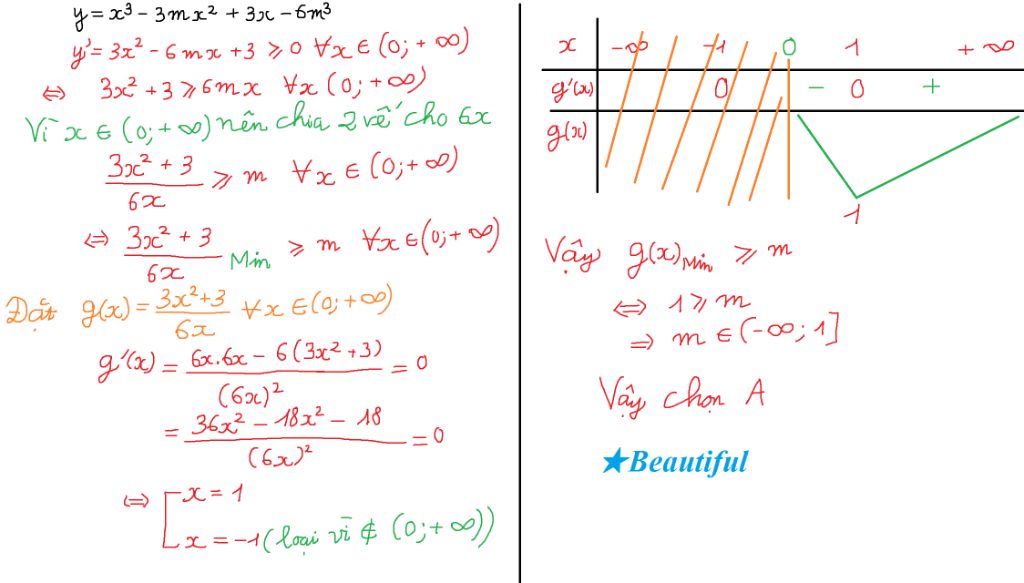 y = x³ - 3mx² + 3x - 6m³
y' = 3x² - 6mx + 3 ⩾ 0 ∀x ∈ (0; +∞)
⇔ 3x² + 3 ⩾ 6mx ∀x (0; +∞)
Vì x ∈ (0; +∞) nên chia 2 vế cho 6x
(3x² + 3)/(6x) ⩾ m ∀x ∈ (0; +∞)
⇔ (3x² + 3)/(6x) Min ⩾ m ∀x ∈ (0; +∞)
Đặt g(x) = (3x²+3)/(6x) ∀x ∈ (0; +∞)
g'(x) = (6x.6x - 6(3x²+3))/((6x)²) = 0
= (36x² - 18x² - 18)/((6x)²) = 0
⇔ [ x = 1
x = -1 (loại vì ∉ (0; +∞))
x -∞ -1 0 1 +∞
g'(x) 0 - 0 +
g(x)
1
Vậy g(x) Min ⩾ m
⇔ 1 ⩾ m
⇒ m ∈ (-∞; 1]
Vậy chọn A
★Beautiful